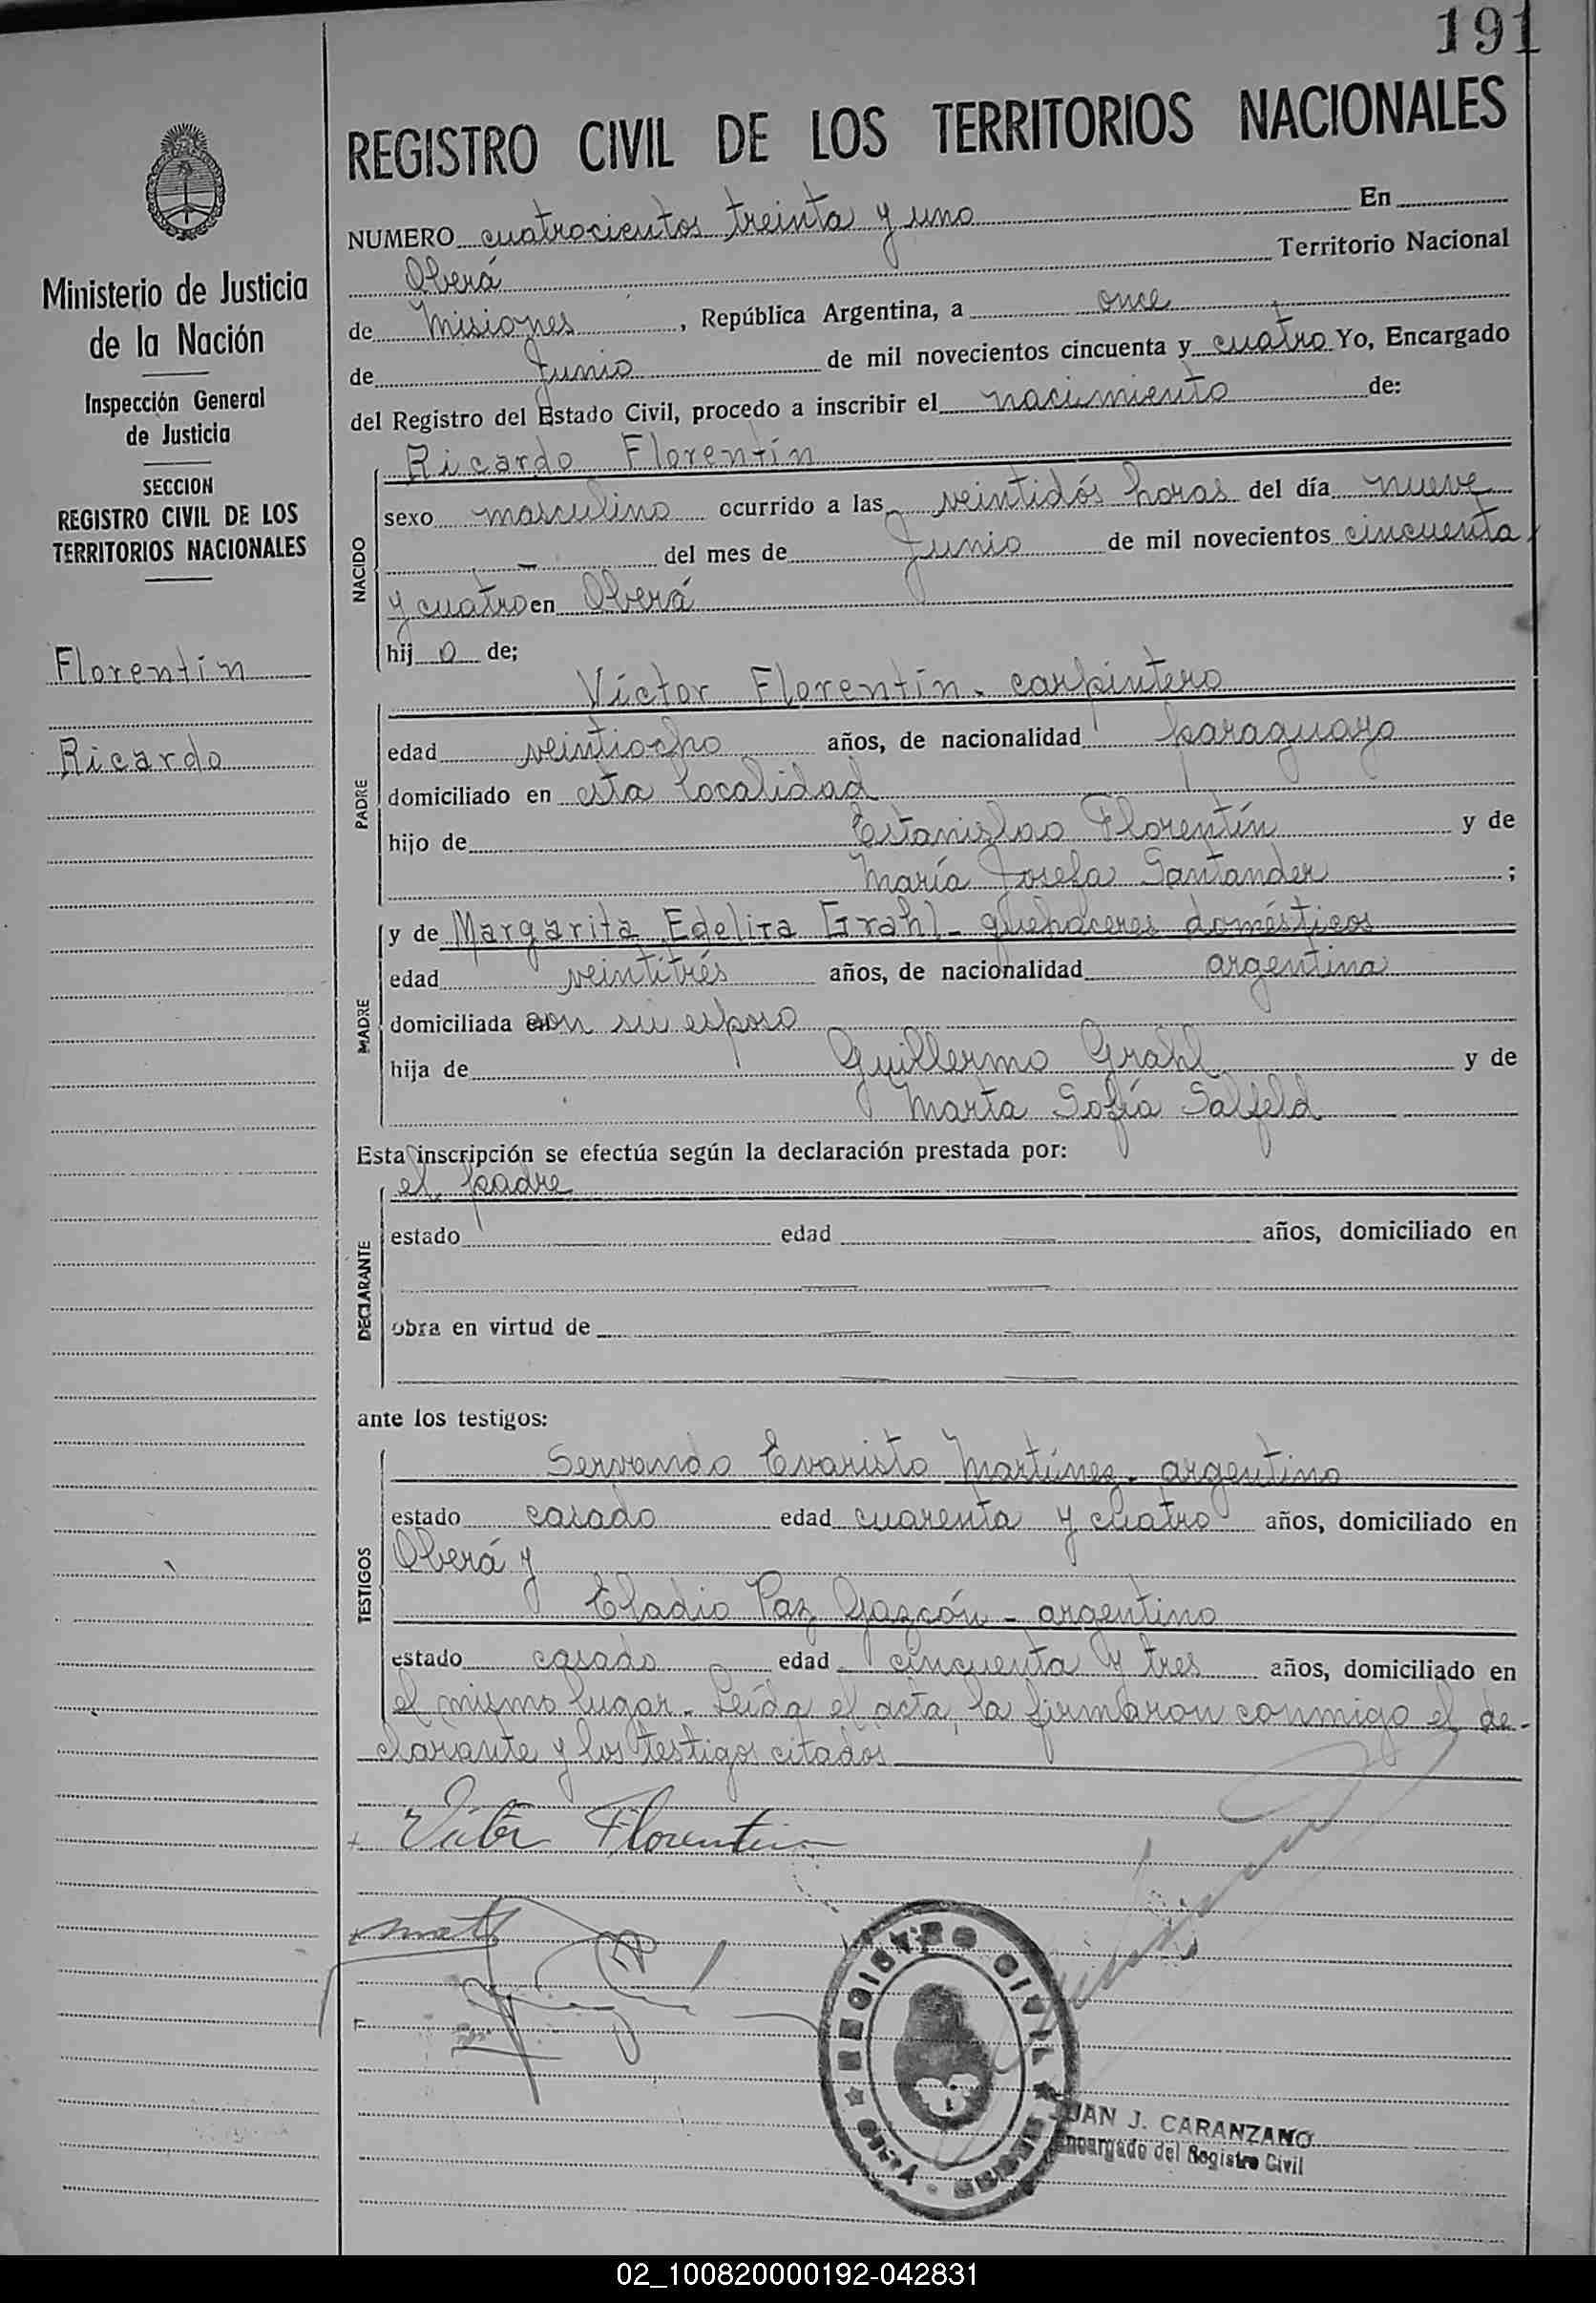 191
REGISTRO CIVIL DE LOS TERRITORIOS NACIONALES
Ministerio de Justicia
de la Nación
Inspección General
de Justicia
SECCION
REGISTRO CIVIL DE LOS
TERRITORIOS NACIONALES
Florentín
Ricardo
NUMERO cuatrocientos treinta y uno En
Oberá Territorio Nacional
de Misiones, República Argentina, a once
de Junio de mil novecientos cincuenta y cuatro Yo, Encargado
del Registro del Estado Civil, procedo a inscribir el nacimiento de:
NACIDO
Ricardo Florentín
sexo masculino ocurrido a las veintidós horas del día nueve
- del mes de Junio de mil novecientos cincuenta
y cuatro en Oberá
hijo de;
PADRE
Víctor Florentín - carpintero
edad veintiocho años, de nacionalidad paraguayo
domiciliado en esta localidad
hijo de Estanislao Florentín y de
María Josefa Santander ;
MADRE
y de Margarita Edelira Grahl - quehaceres domésticos
edad veintitrés años, de nacionalidad argentina
domiciliada con su esposo
hija de Guillermo Grahl y de
Marta Sofía Salfeld
Esta inscripción se efectúa según la declaración prestada por:
DECLARANTE
el padre
estado edad años, domiciliado en
obra en virtud de
ante los testigos:
TESTIGOS
Servando Evaristo Martínez - argentino
estado casado edad cuarenta y cuatro años, domiciliado en
Oberá y
Eladio Paz Gazcón - argentino
estado casado edad cincuenta y tres años, domiciliado en
el mismo lugar. Leída el acta, la firmaron conmigo el de-
clarante y los testigos citados
Víctor Florentin
REGISTRO CIVIL
JUAN J. CARANZANO
Encargado del Registro Civil
02_100820000192-042831